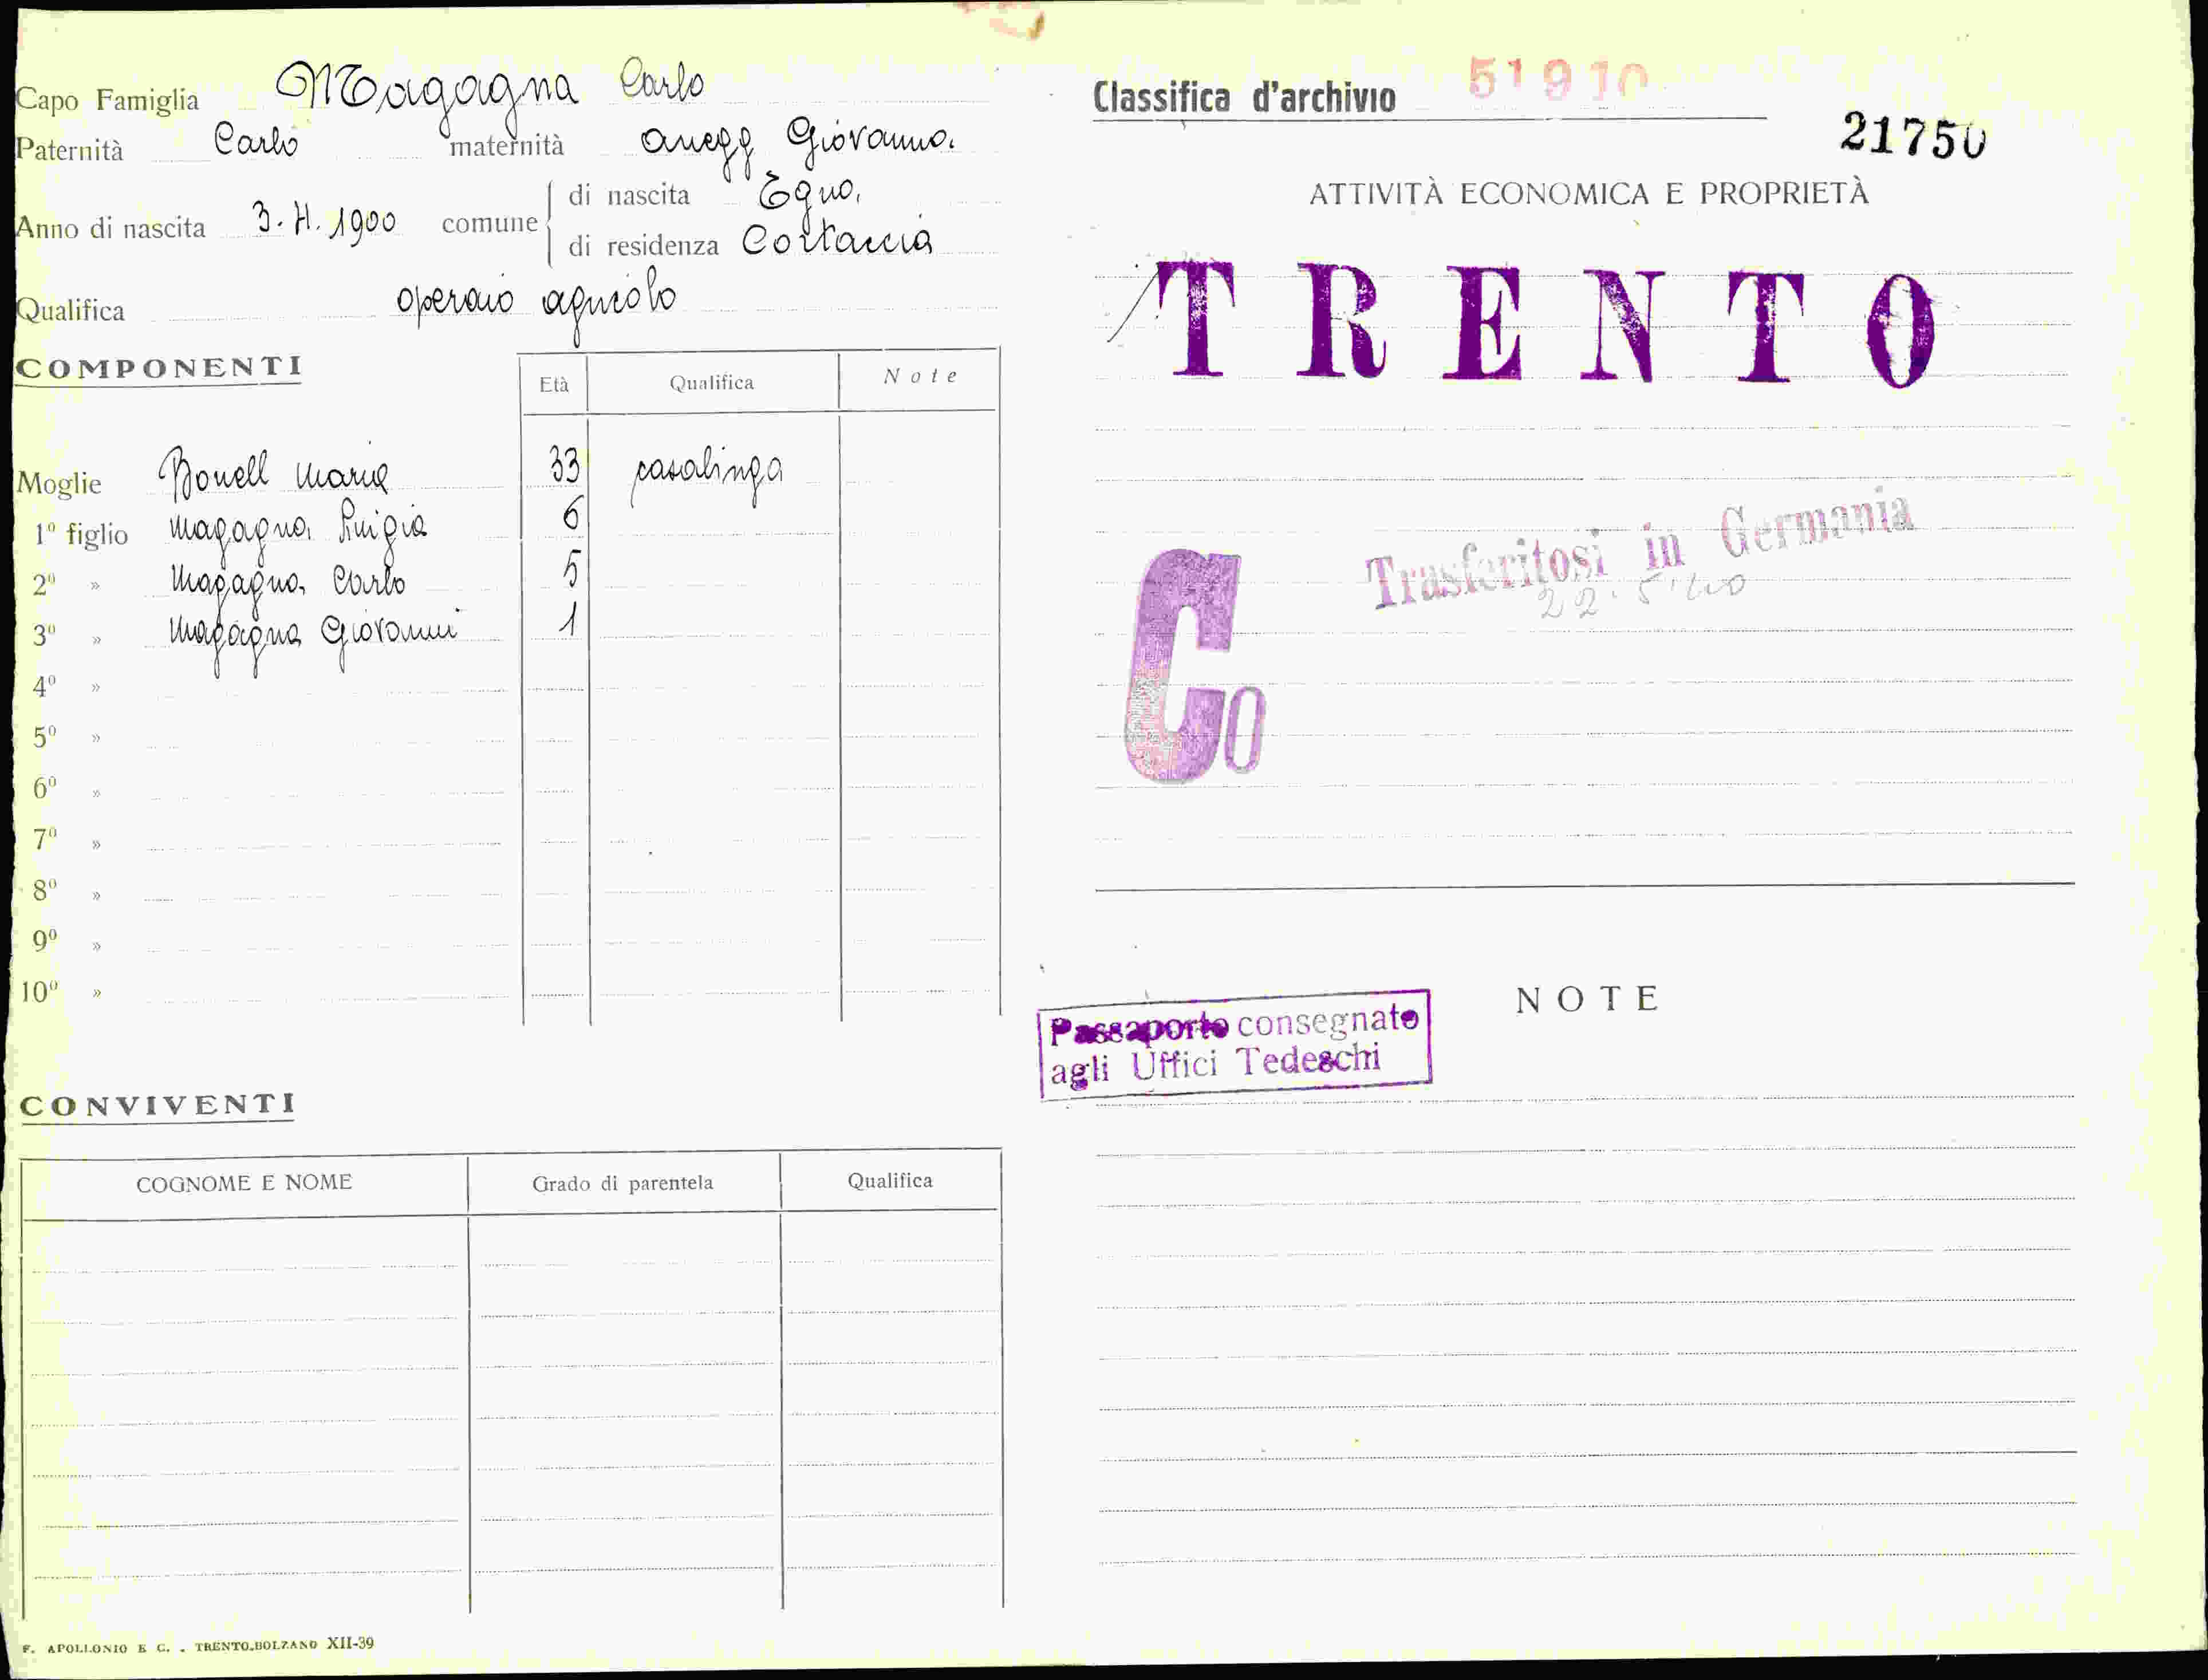 Capo Famiglia Magagna Carlo
Paternità Carlo maternità Anegg Giovanna
Anno di nascita 3. H. 1900 comune di nascita Egna
di residenza Cortaccia
Qualifica operaio agricolo
COMPONENTI Età Qualifica Note
Moglie Bonell Maria 33 casalinga
1º figlio Magagna Luigia 6
2º » Magagna Carlo 5
3º » Magagna Giovanni 1
4º »
5º »
6º »
7º »
8º »
9º »
10º »
CONVIVENTI
COGNOME E NOME Grado di parentela Qualifica
F. APOLLONIO E C. - TRENTO-BOLZANO XII-39
Classifica d'archivio 51910
21750
ATTIVITÀ ECONOMICA E PROPRIETÀ
TRENTO
Trasferitosi in Germania
22.5.40
Co
NOTE
Passaporto consegnato
agli Uffici Tedeschi